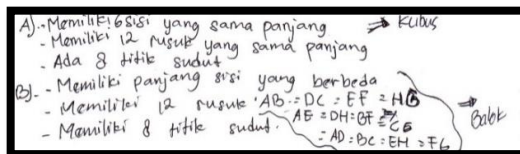 A).- Memiliki 6 sisi yang sama panjang ⇒ Kubus
- Memiliki 12 rusuk yang sama panjang
- Ada 8 titik sudut
(B).- Memiliki panjang sisi yang berbeda
- Memiliki 12 rusuk. AB = DC = EF = HG ⇒ Balok
AE = DH = BF = CG
- Memiliki 8 titik sudut. = AD = BC = EH = FG